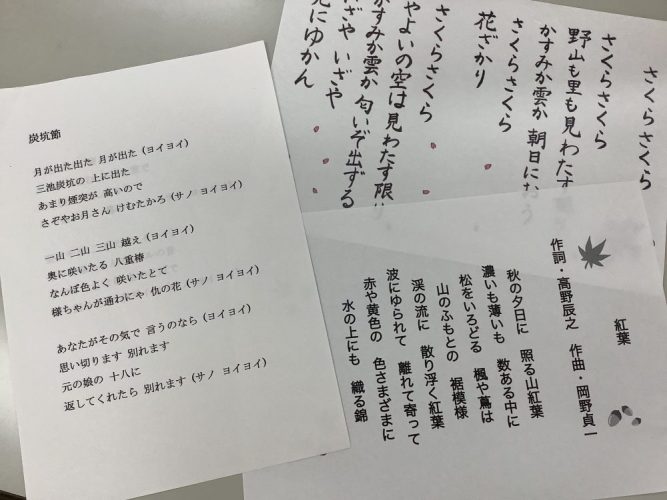 炭坑節
月が出た出た 月が出た (ヨイヨイ)
三池炭坑の 上に出た
あまり煙突が 高いので
さぞやお月さん けむたかろ (サノ ヨイヨイ)
一山 二山 三山 越え (ヨイヨイ)
奥に咲いたる 八重椿
なんぼ色よく 咲いたとて
様ちゃんが通わにゃ 仇の花 (サノ ヨイヨイ)
あなたがその気で 言うのなら (ヨイヨイ)
思い切ります 別れます
元の娘の 十八に
返してくれたら 別れます (サノ ヨイヨイ)
さくらさくら
さくらさくら
野山も里も見わたす
かすみか雲か 朝日におう
さくらさくら
花ざかり
さくらさくら
やよいの空は 見わたす限
かすみか雲か 匂いぞ出ずる
いざや いざや
にゆかん
紅葉
作詞・高野辰之 作曲・岡野貞一
秋の夕日に 照る山紅葉
濃いも薄いも 数ある中に
松をいろどる 楓や蔦は
山のふもとの 裾模様
渓の流に 散り浮く紅葉
波にゆられて 離れて寄って
赤や黄色の 色さまざまに
水の上にも 織る錦